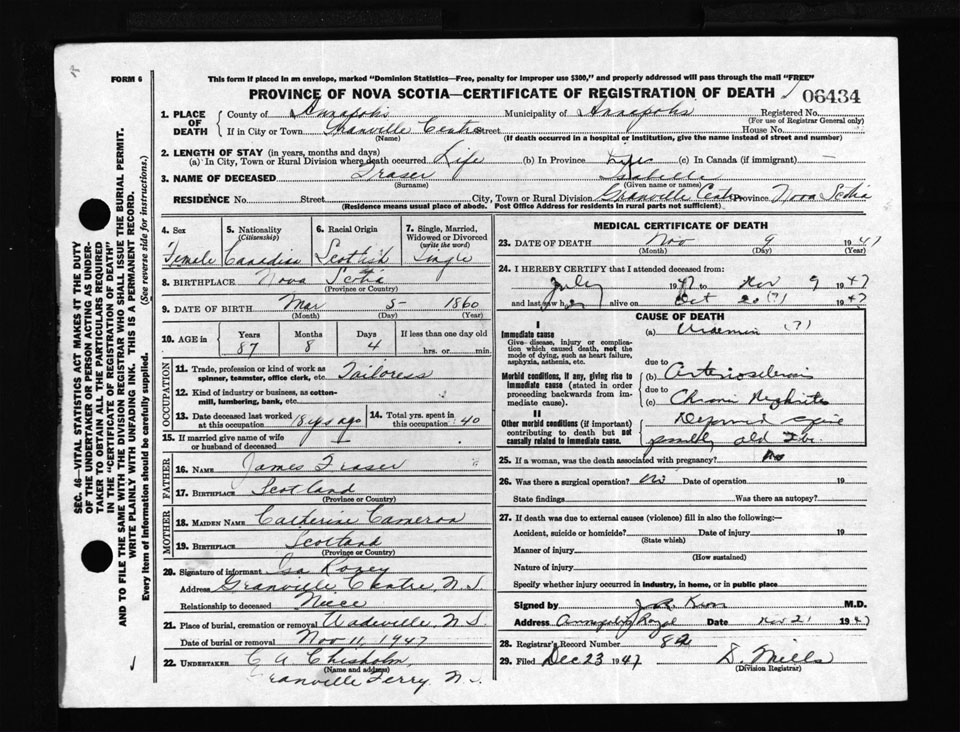 FORM 6
This form if placed in an envelope, marked "Dominion Statistics—Free, penalty for improper use $300," and properly addressed will pass through the mail "FREE"
PROVINCE OF NOVA SCOTIA—CERTIFICATE OF REGISTRATION OF DEATH
06434
1. PLACE OF DEATH
County of Annapolis Municipality of Annapolis Registered No.
(For use of Registrar General only)
If in City or Town Granville Centre Street House No.
(Name) (If death occurred in a hospital or institution, give the name instead of street and number)
2. LENGTH OF STAY (in years, months and days)
(a) In City, Town or Rural Division where death occurred Life (b) In Province Life (c) In Canada (if immigrant) —
3. NAME OF DECEASED Fraser Isabella
(Surname) (Given name or names)
RESIDENCE No. Street City, Town or Rural Division Granville Centre Province Nova Scotia
(Residence means usual place of abode. Post Office Address for residents in rural parts not sufficient).
4. Sex 5. Nationality (Citizenship) 6. Racial Origin 7. Single, Married, Widowed or Divorced (write the word)
Female Canadian Scottish Single
8. BIRTHPLACE Nova Scotia
(Province or Country)
9. DATE OF BIRTH Mar 5 1860
(Month) (Day) (Year)
10. AGE in Years Months Days If less than one day old
87 8 4 hrs. or min.
OCCUPATION
11. Trade, profession or kind of work as spinner, teamster, office clerk, etc. Tailoress
12. Kind of industry or business, as cotton-mill, lumbering, bank, etc.
13. Date deceased last worked at this occupation 18 yrs ago 14. Total yrs. spent in this occupation 40
15. If married give name of wife or husband of deceased
FATHER
16. NAME James Fraser
17. BIRTHPLACE Scotland
(Province or Country)
MOTHER
18. MAIDEN NAME Catherine Cameron
19. BIRTHPLACE Scotland
(Province or Country)
20. Signature of informant Isa
Address Granville Centre, N.S.
Relationship to deceased Niece
21. Place of burial, cremation or removal Wadeville, N.S.
Date of burial or removal Nov 11, 1947
22. UNDERTAKER C A Chisholm,
(Name and address)
Granville Ferry, N.S.
MEDICAL CERTIFICATE OF DEATH
23. DATE OF DEATH Nov 9 1947
(Month) (Day) (Year)
24. I HEREBY CERTIFY that I attended deceased from:
July 1947 to Nov 9 1947
and last saw h alive on Oct 20 (?) 1947
CAUSE OF DEATH
I
Immediate cause (a) Uraemia (?)
Give disease, injury or complication which caused death, not the mode of dying, such as heart failure, asphyxia, asthenia, etc.
due to
Morbid conditions, if any, giving rise to immediate cause (stated in order proceeding backwards from immediate cause).
(b) Arteriosclerosis
due to
(c) Chronic Nephritis
II
Other morbid conditions (if important) contributing to death but not causally related to immediate cause.
Deformed spine
possibly old Tbc.
25. If a woman, was the death associated with pregnancy? No
26. Was there a surgical operation? no Date of operation 19
State findings Was there an autopsy?
27. If death was due to external causes (violence) fill in also the following:—
Accident, suicide or homicide? Date of injury 19
(State which)
Manner of injury
(How sustained)
Nature of injury
Specify whether injury occurred in industry, in home, or in public place
Signed by M.D.
Address Annapolis Royal Date Nov 21 1947
28. Registrar's Record Number 84
29. Filed Dec 23 1947 D. Mills
(Division Registrar)
SEC. 46—VITAL STATISTICS ACT MAKES IT THE DUTY OF THE UNDERTAKER OR PERSON ACTING AS UNDERTAKER TO OBTAIN ALL THE PARTICULARS REQUIRED IN THE "CERTIFICATE OF REGISTRATION OF DEATH"
AND TO FILE THE SAME WITH THE DIVISION REGISTRAR WHO SHALL ISSUE THE BURIAL PERMIT.
WRITE PLAINLY WITH UNFADING INK. THIS IS A PERMANENT RECORD.
Every item of information should be carefully supplied. (See reverse side for instructions.)